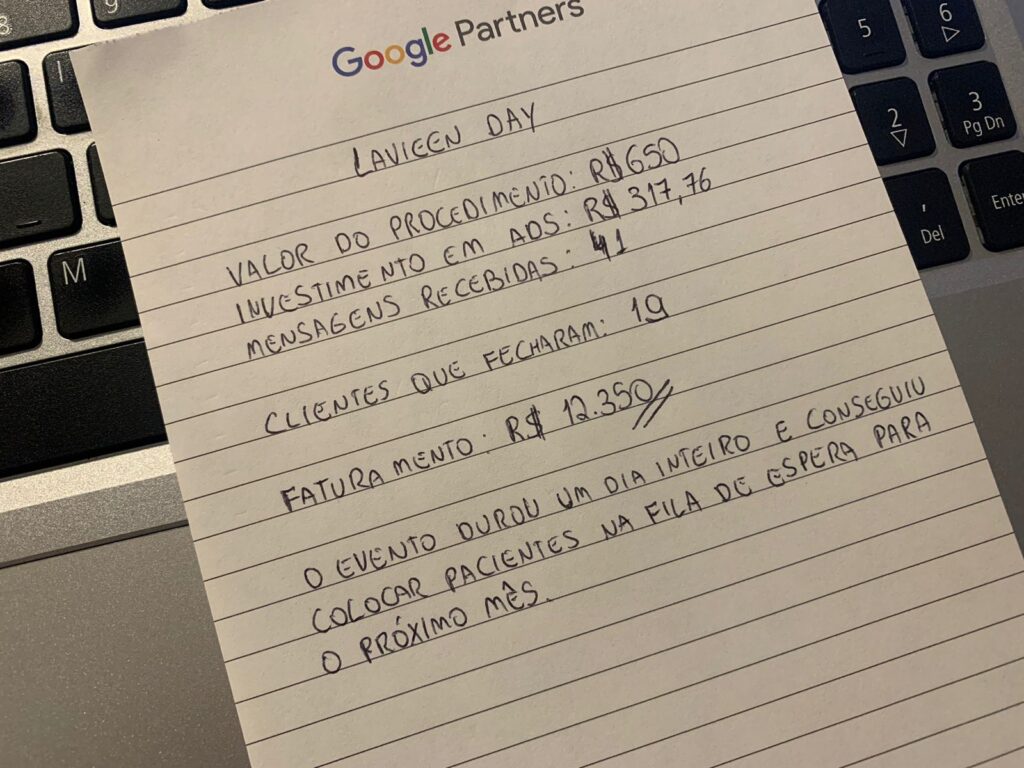 Google Partners
LAVIEEN DAY
VALOR DO PROCEDIMENTO: R$650
INVESTIMENTO EM ADS: R$ 317,76
MENSAGENS RECEBIDAS: 41
CLIENTES QUE FECHARAM: 19
FATURAMENTO: R$ 12.350//
O EVENTO DUROU UM DIA INTEIRO E CONSEGUIU
COLOCAR PACIENTES NA FILA DE ESPERA PARA
O PRÓXIMO MÊS.
M
5
6
2
3
Pg Dn
,
Del
Enter